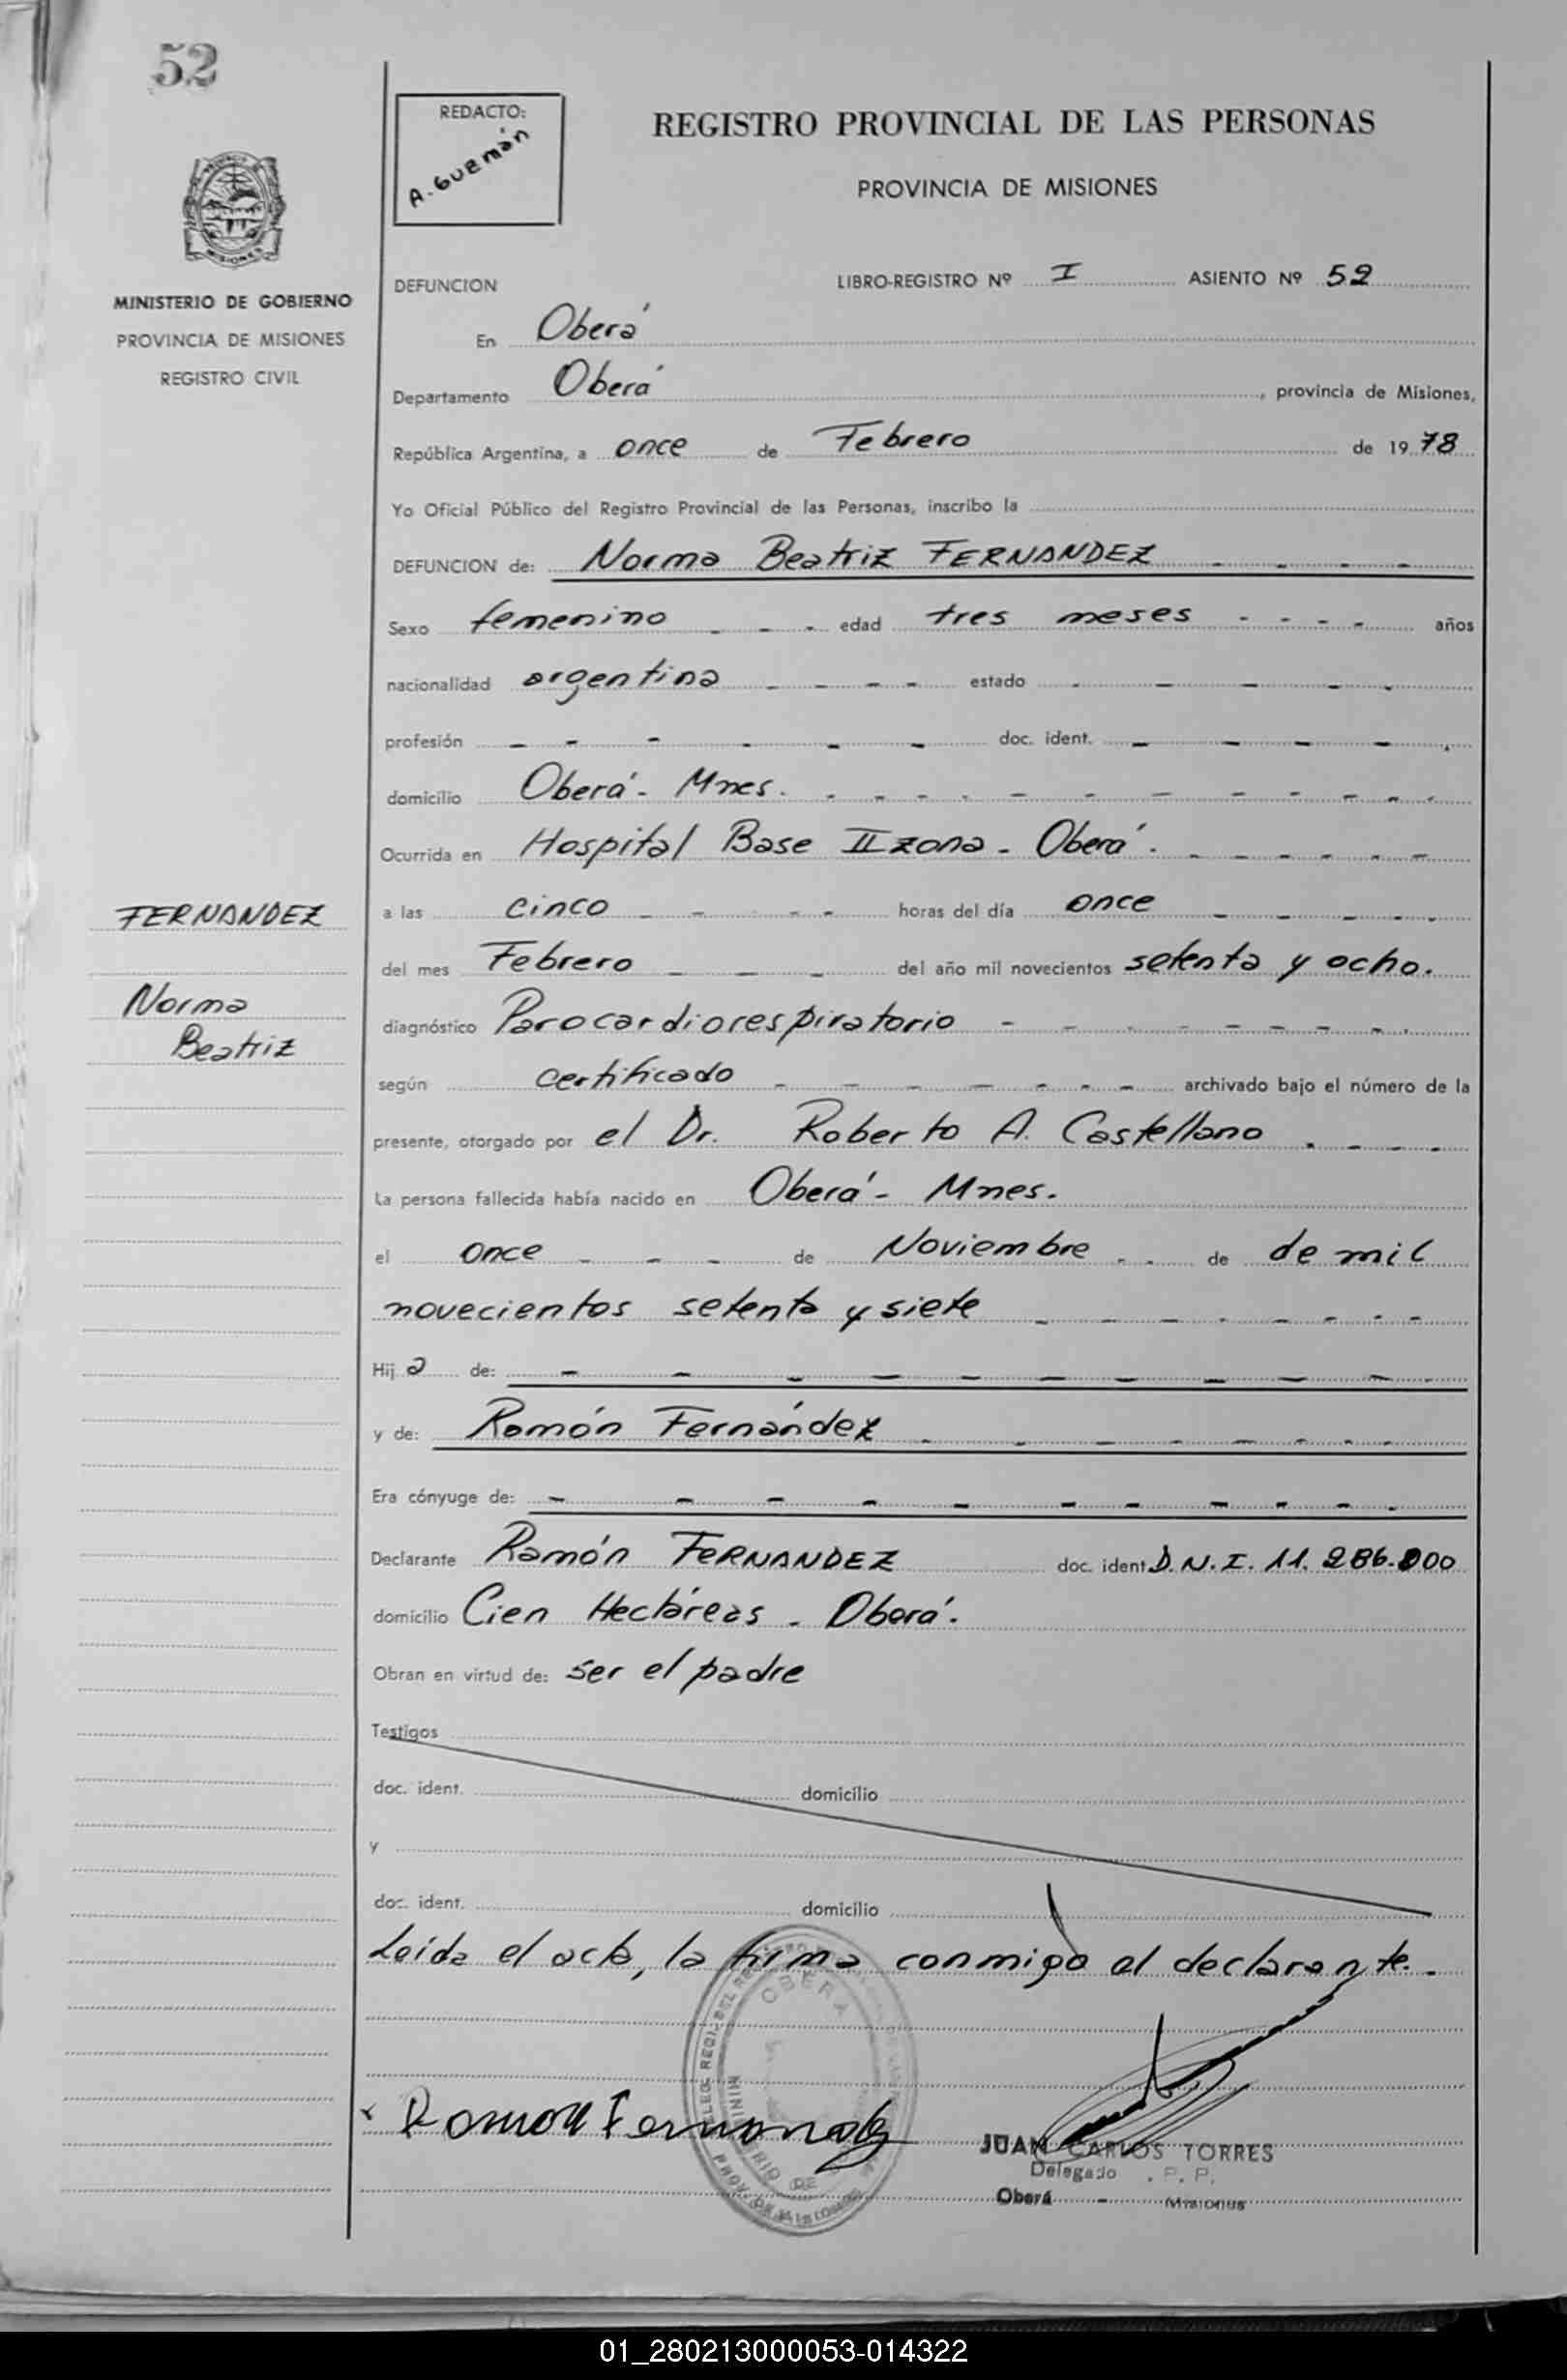 52
REDACTO:
A. GUZMán
REGISTRO PROVINCIAL DE LAS PERSONAS
PROVINCIA DE MISIONES
MISIONES
MINISTERIO DE GOBIERNO
PROVINCIA DE MISIONES
REGISTRO CIVIL
DEFUNCION LIBRO-REGISTRO Nº I ASIENTO Nº 52
En Oberá
Departamento Oberá, provincia de Misiones,
República Argentina, a once de Febrero de 1978
Yo Oficial Público del Registro Provincial de las Personas, inscribo la
DEFUNCION de: Norma Beatriz FERNANDEZ - - - -
Sexo femenino - - - edad tres meses - - - - años
nacionalidad argentina - - - - estado - - - - -
profesión - - - - - - doc. ident. - - - - -
domicilio Oberá - Mnes. - - - - - - - - - - - -
Ocurrida en Hospital Base II zona - Oberá. - - - - - -
FERNANDEZ
a las cinco - - - - horas del día once - - - - -
del mes Febrero - - - del año mil novecientos setenta y ocho.
Norma
Beatriz
diagnóstico Parocardiorespiratorio - - - - - - - -
según certificado - - - - - - - archivado bajo el número de la
presente, otorgado por el Dr. Roberto A. Castellano - - - -
La persona fallecida había nacido en Oberá - Mnes.
el once - - - de Noviembre - - de de mil
novecientos setenta y siete - - - - - - - -
Hija de: - - - - - - - - - -
y de: Ramón Fernández - - - - - - - -
Era cónyuge de: - - - - - - - - - - -
Declarante Ramón FERNANDEZ doc. ident D.N.I. 11.286.800
domicilio Cien Hectáreas - Oberá.
Obran en virtud de: ser el padre
Testigos
doc. ident. domicilio
y
doc. ident. domicilio
Leída el acta, la firma conmigo el declarante. -
OBERA
x Ramon Fernandez
JUAN CARLOS TORRES
Delegado P. P.
Oberá - Misiones
01_280213000053-014322